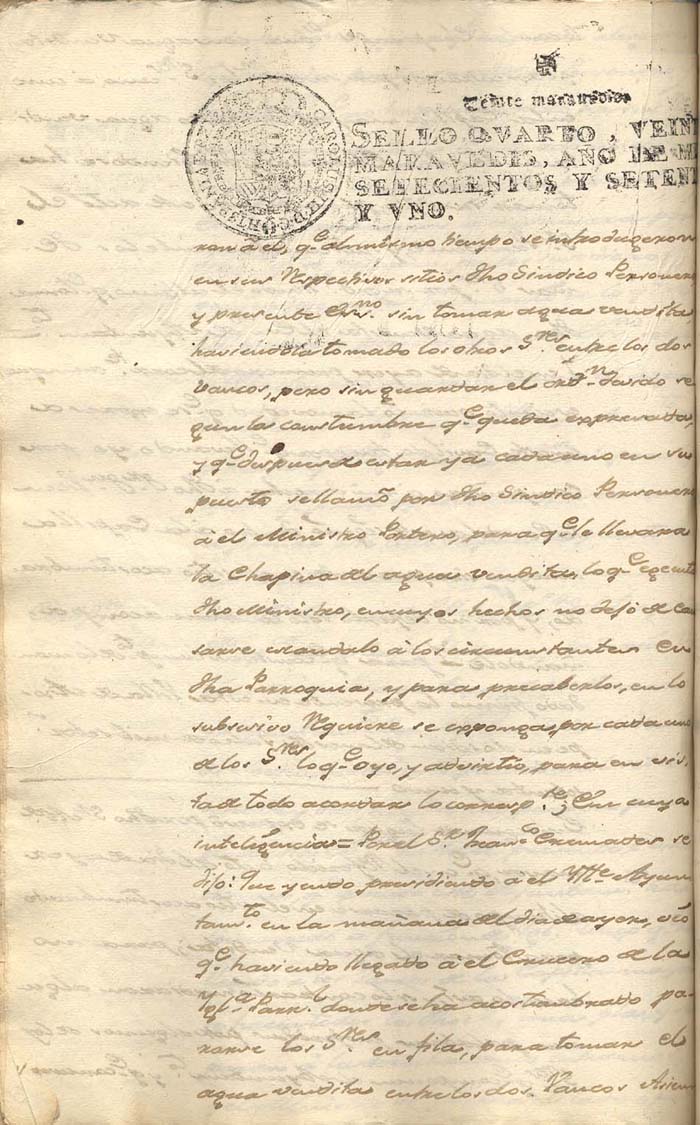 Veinte maravedis
SELLO QVARTO, VEIN
MARAVEDIS, AÑO DE MI
SETECIENTOS Y SETEN
Y VNO.
CAROLUS III D. G. HISPANIAR
ron à el, q.e al mismo tiempo se introdugeron
en sus respectivos sitios dho Sindico Personero
y presente Ess.no sin tomar agua vendita
haviendola tomado los otros S.res entre los dos
vancos, pero sin guardar el ord.n devido se
gun la constumbre q.e queda expresada,
y q.e despues de estar ya cada uno en su
puesto se llamó por dho Sindico Personero
à el Ministro Portero, para q.e le llevara
la del agua vendita, lo q.e egecutó
dho Ministro, en cuyos hechos no dejó de cau
sarse escandalo à los circunstantes en
dha Parroquia, y para precaberlos, en lo
subcesivo requiere se exponga por cada uno
de los S.res lo q.e oyo, y advirtio, para en vis
ta de todo acordar lo corresp.te; En cuya
inteligencia = Por el S.r Fran.co Cremades se
dijo: Que yendo presidiendo à el Yltte Ayun
tam.to en la mañana del dia de ayer, vió
q.e haviendo llegado à el Crucero de la
Ygl.a Parr.l donde se ha acostumbrado pa
rarse los S.res en fila, para tomar el
agua vendita entre los dos Vancos